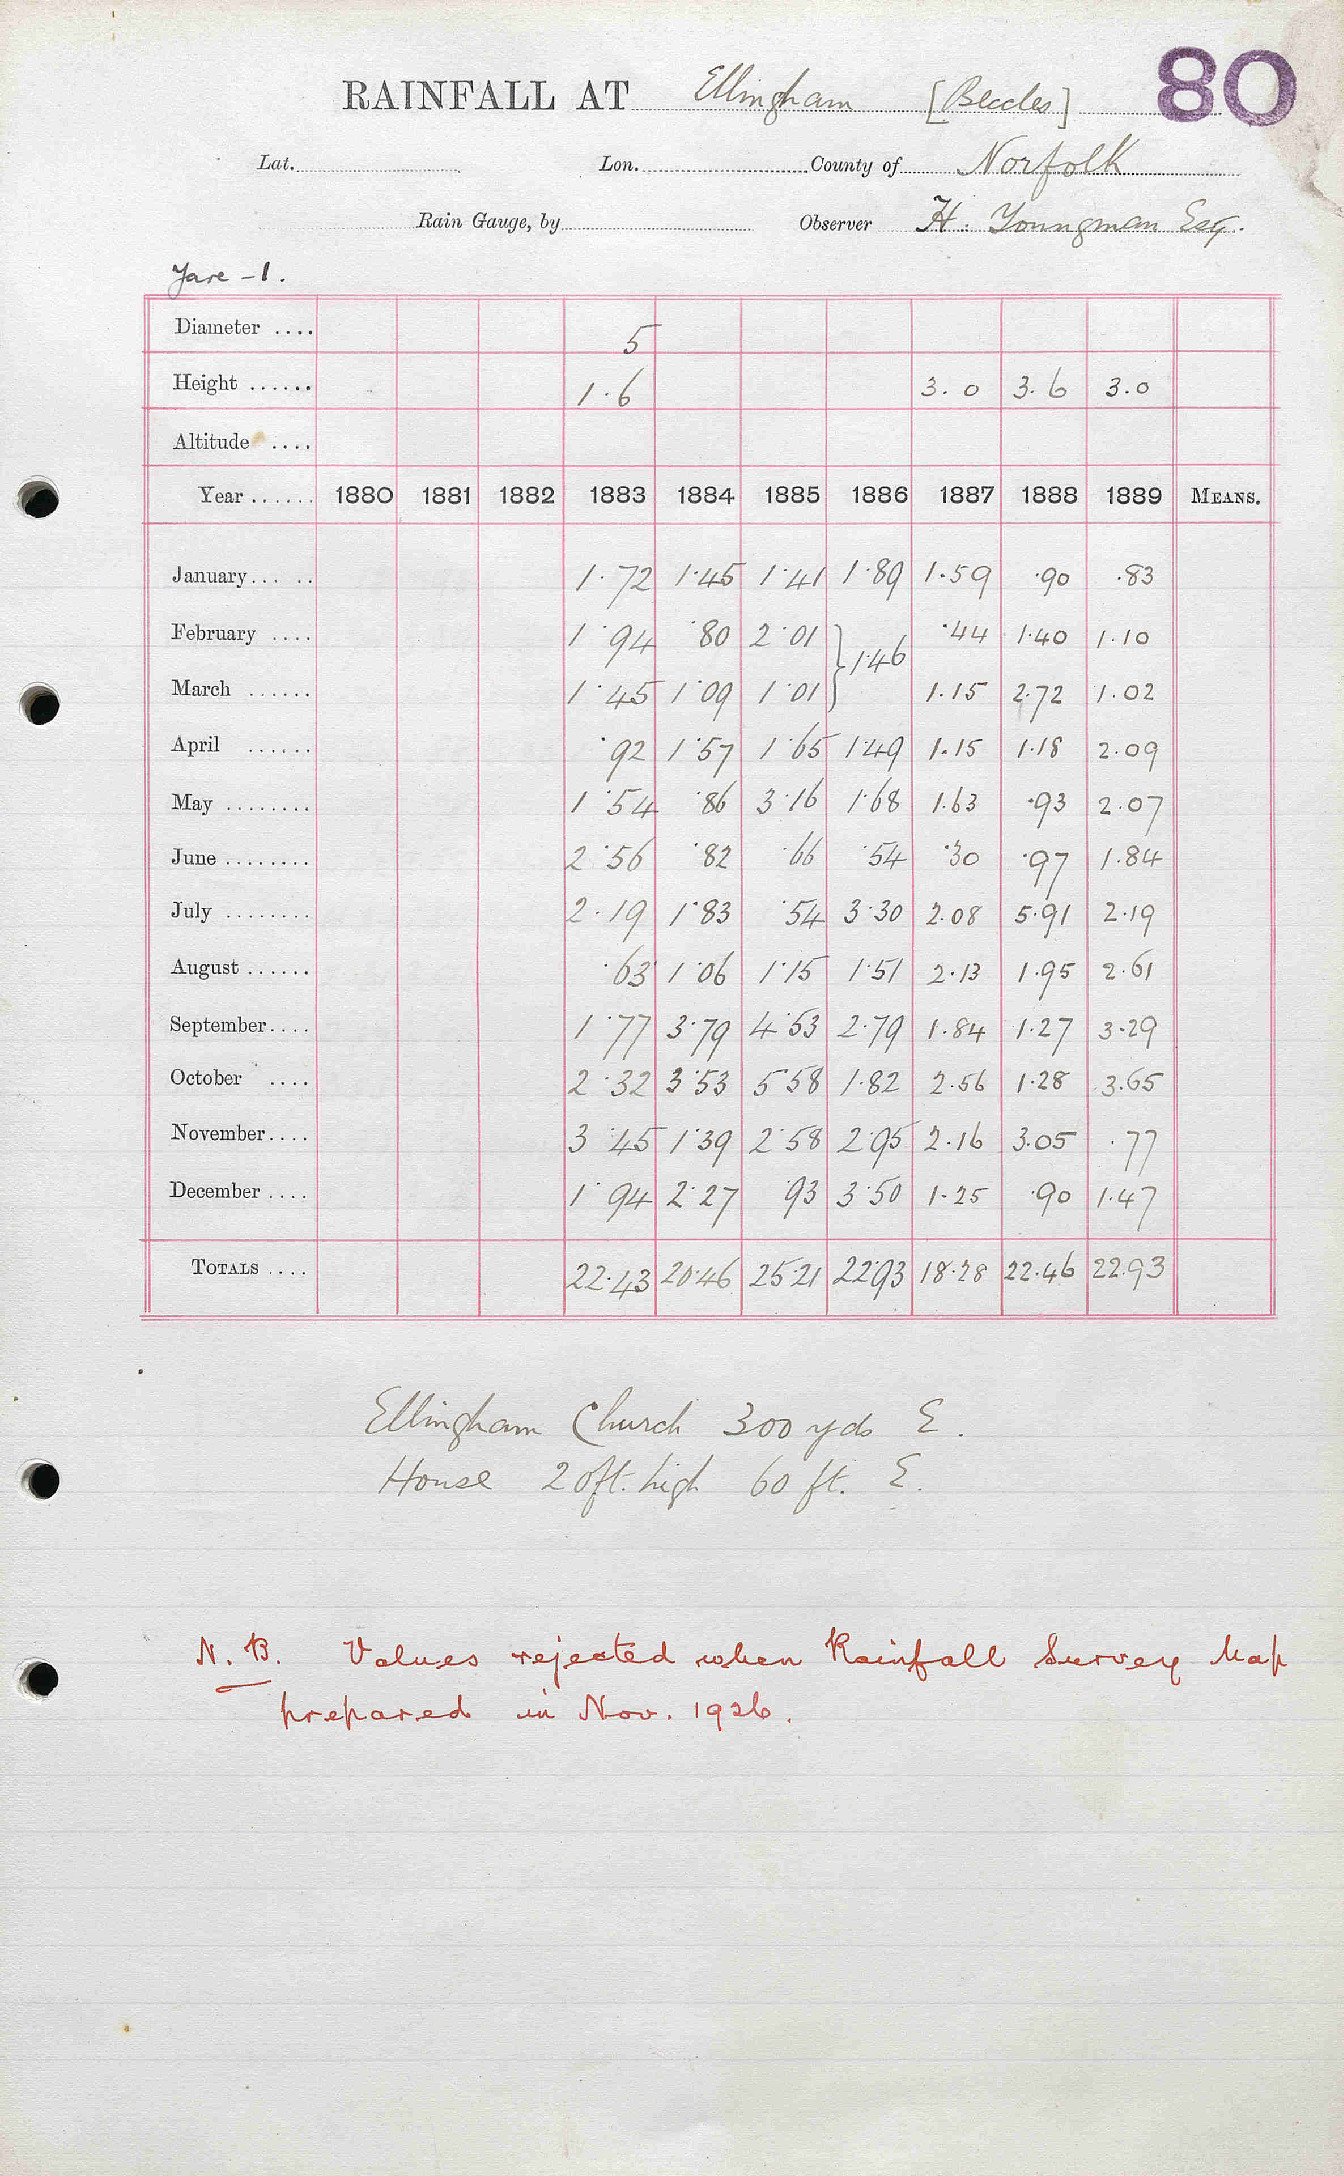 80
RAINFALL AT Ellingham [Beccles]
Lat. Lon. County of Norfolk
Rain Gauge, by Observer H. Youngman Esq.
Yare - 1.
Diameter .... 5
Height ...... 1.6 3.0 3.6 3.0
Altitude ....
Year ...... 1880 1881 1882 1883 1884 1885 1886 1887 1888 1889 MEANS.
January... .. 1.72 1.45 1.41 1.89 1.59 .90 .83
February .... 1.94 .80 2.01 } 1.46 .44 1.40 1.10
March ...... 1.45 1.09 1.01 1.15 2.72 1.02
April ...... .92 1.57 1.65 1.49 1.15 1.18 2.09
May ........ 1.54 .86 3.16 1.68 1.63 .93 2.07
June ........ 2.56 .82 .66 .54 .30 .97 1.84
July ........ 2.19 1.83 .54 3.30 2.08 5.91 2.19
August ...... .63 1.06 1.15 1.51 2.13 1.95 2.61
September.... 1.77 3.79 4.53 2.79 1.84 1.27 3.29
October .... 2.32 3.53 5.58 1.82 2.56 1.28 3.65
November.... 3.45 1.39 2.58 2.95 2.16 3.05 .77
December .... 1.94 2.27 .93 3.50 1.25 .90 1.47
TOTALS .... 22.43 20.46 25.21 22.93 18.28 22.46 22.93
Ellingham Church 300 yds E.
House 20ft. high 60 ft. E.
N.B. Values rejected when Rainfall Survey Map
prepared in Nov. 1926.